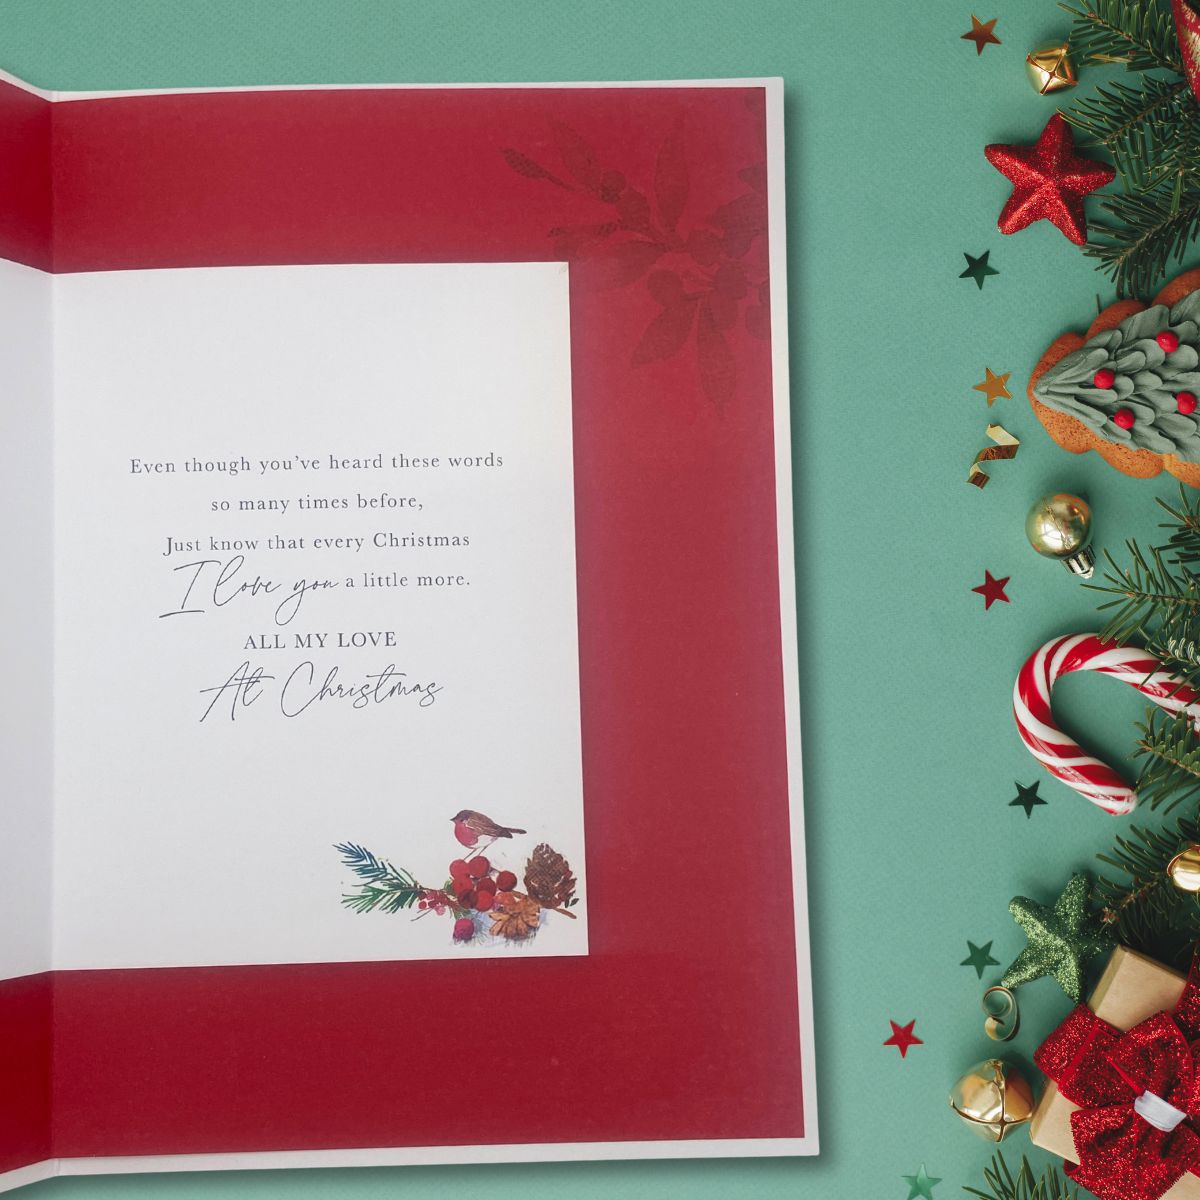 Even though you've heard these words
so many times before,
Just know that every Christmas
I love you a little more.
ALL MY LOVE
At Christmas